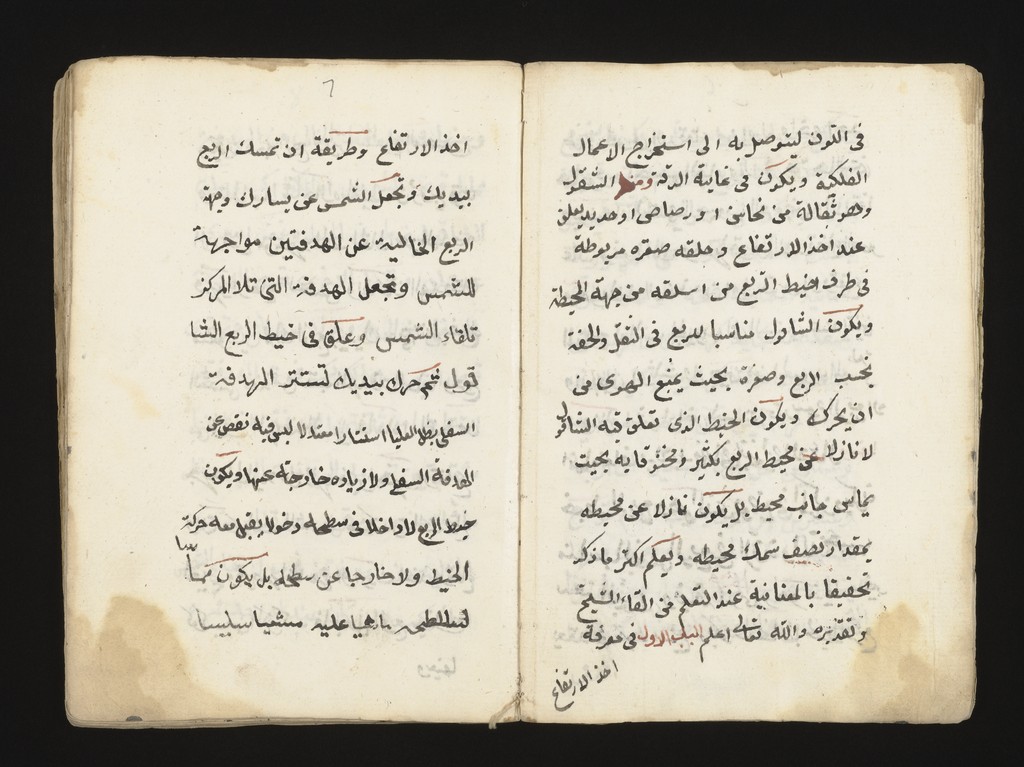 فى اللون ليتوصل به الى استخراج الاعمال
الفلكية ويكون فى غاية الدقة ومنها الشقول
وهو ثقالة من نحاس او رصاص او حديد يعلق
عند اخذ الارتفاع وحلقه صغره مربوطة
فى طرف خيط الربع من اسفله من جهة المحيطة
ويكون الشاول مناسبا للربع فى الثقل والخفة
بحسب الربع وصغره بحيث يمنع الهوى من
ان يحرك ويكون الخيط الذى تعلق فيه الشاقول
لا نازلا عن محيط الربع بكثير ومحنو قايه بحيث
يماس جانب محيط بل يكون نازلا عن محيطه
بمقدار نصف سمك محيطه ويعلم اكثر ماذكر
تحقيقا بالمفانية عند التعلم من القاء الشيخ
وتقديره والله تعالى اعلم الباب الاول فى معرفة
اخذ الارتفاع
٦
اخذ الارتفاع وطريقة ان تمسك الربع
بيديك وتجعل الشمس عن يسارك وجهة
الربع الخالية عن الهدفتين مواجهة
للشمس وتجعل الهدفة التى تلا المركز
تلقاء الشمس وعلق فى خيط الربع الشا
قول ثم حرك بيديك لتستتر الهدفة
السفلى بظل العليا استتارا معتدلا ليس فيه نقص عن
الهدفة السفلى ولا زياده خارجة عنها ويكون
خيط الربع لا داخلا فى سطحه دخولا يقبل معه حركة
الخيط ولا خارجا عن سطحه بل يكون مماسا
لسطحه ماشيا عليه مشيا سلسا